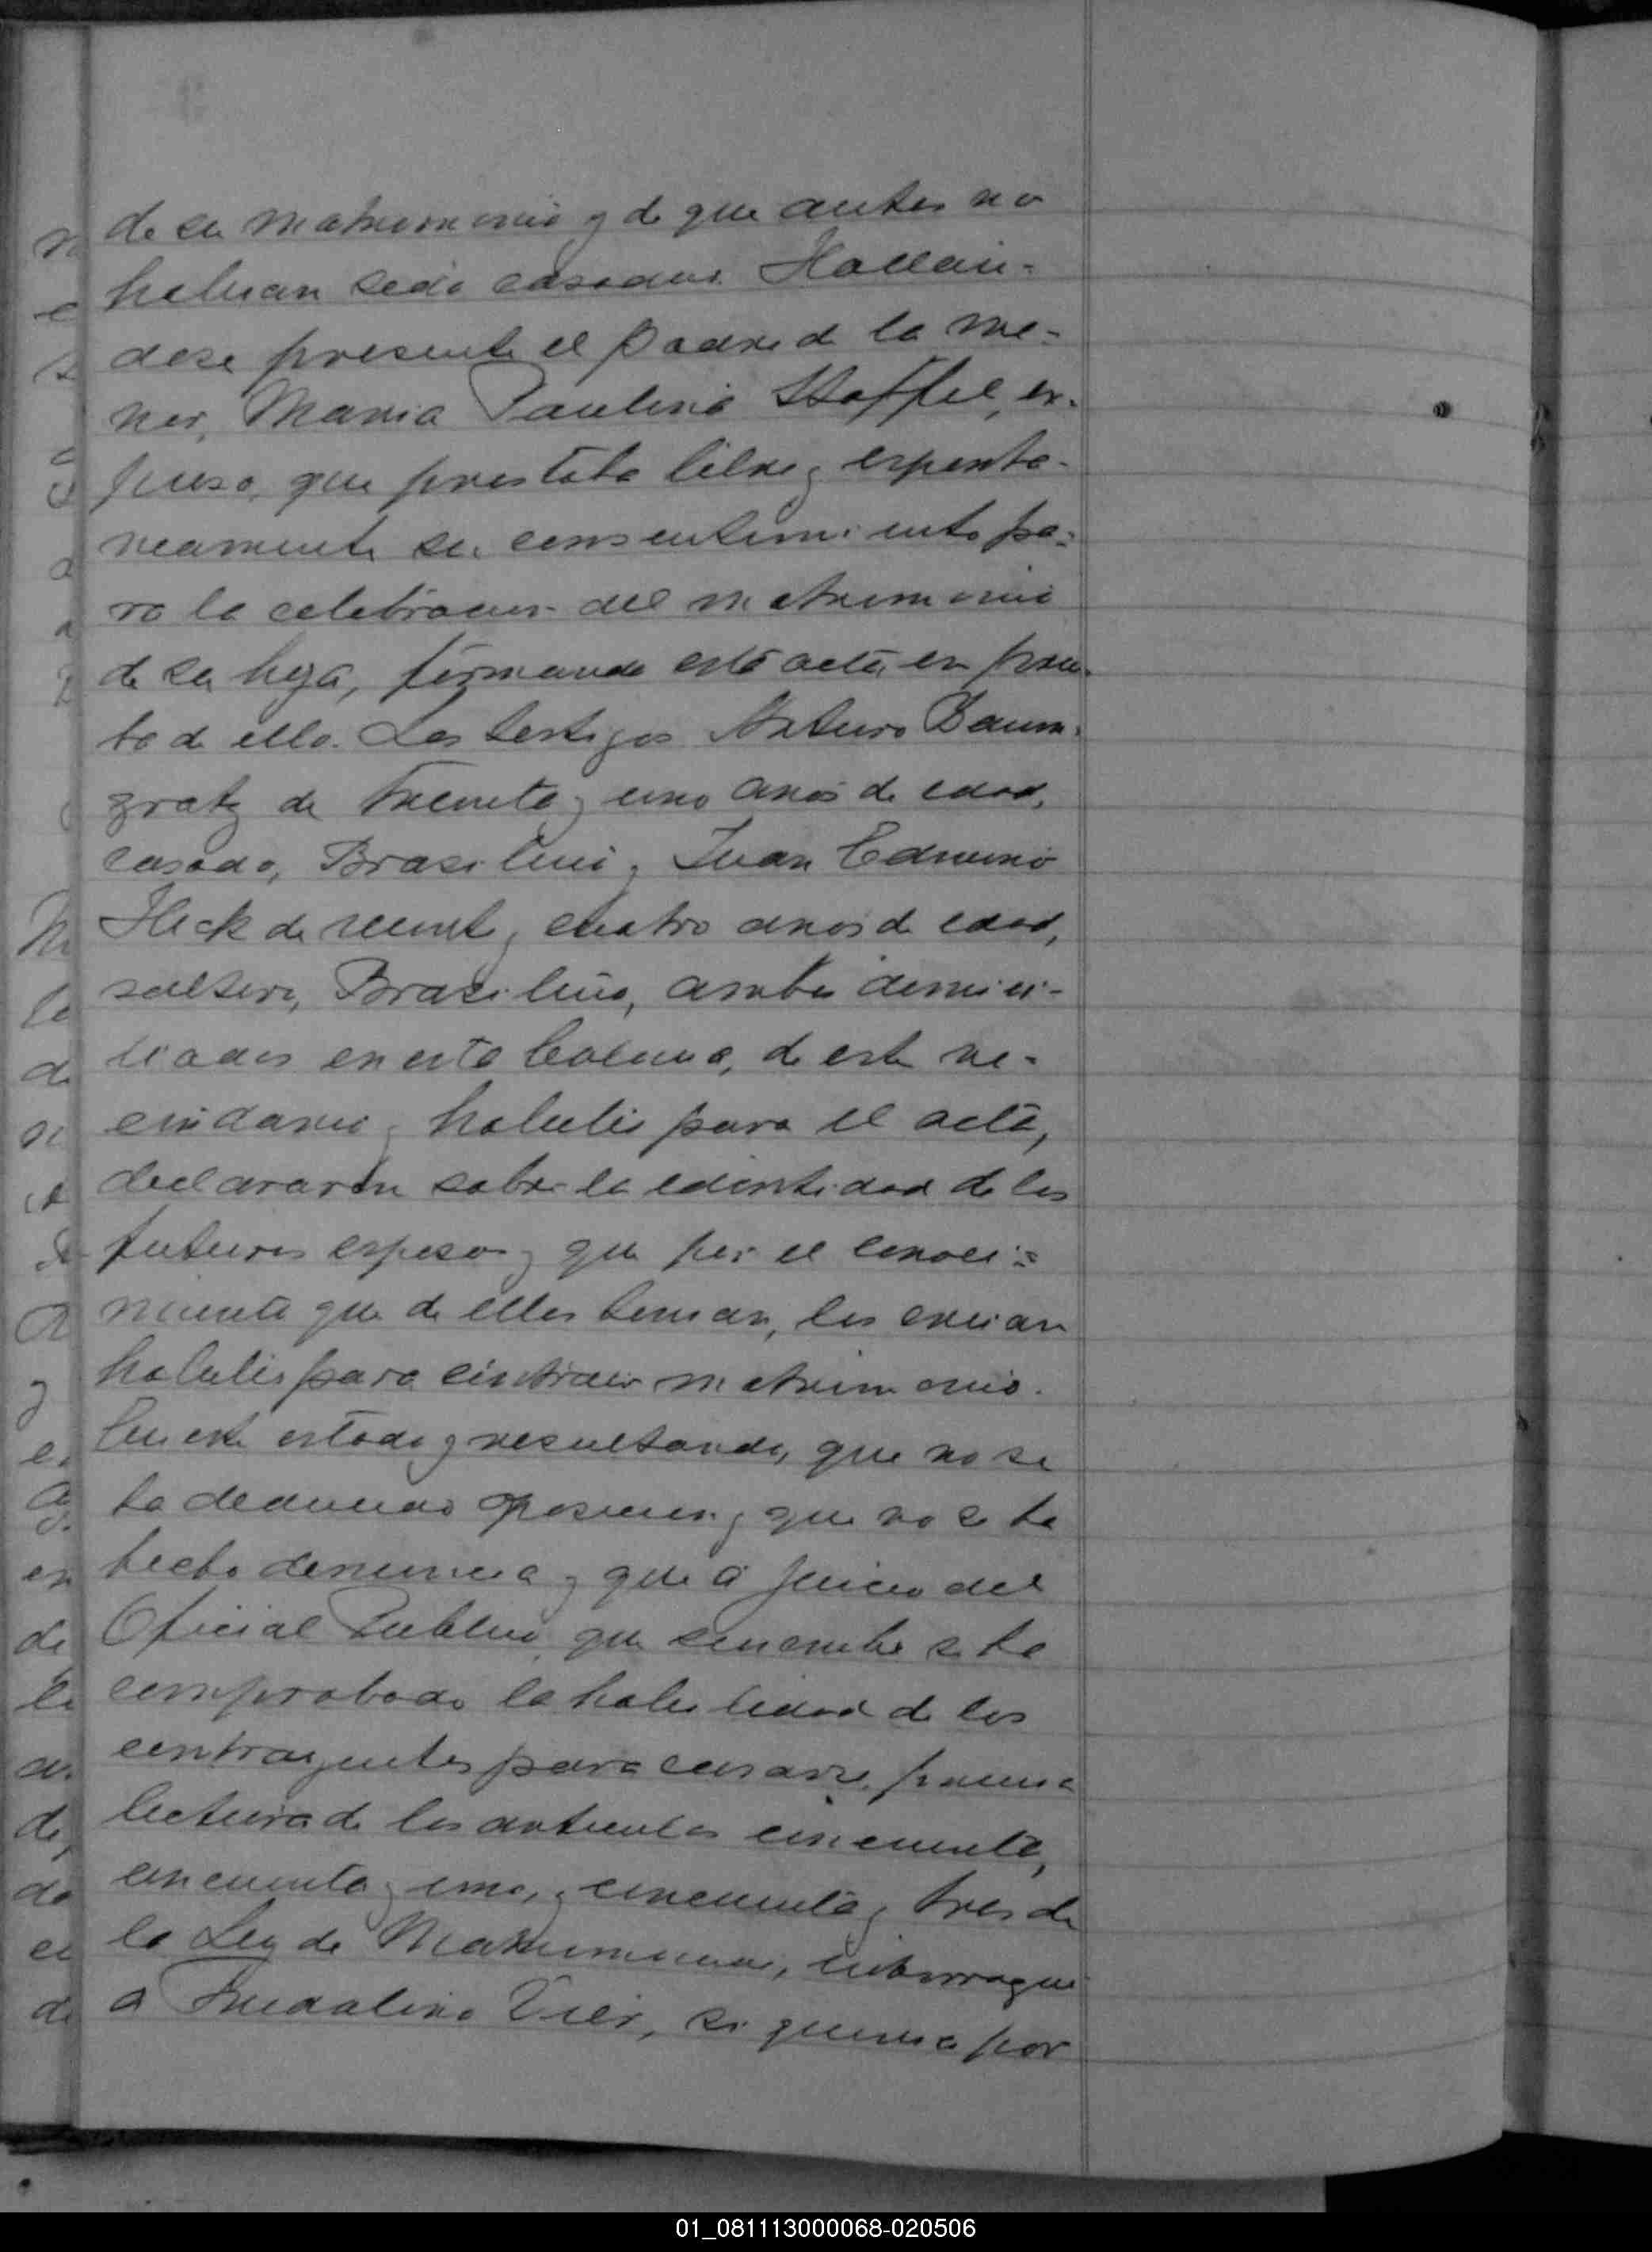 de su matrimonio y de que antes no
habian sido casados. Hallan-
dose presente el Padre de la me-
nor, Maria Paulina Staffel, ex-
puso, que prestaba libre y esponta-
neamente su consentimiento pa-
ra la celebracion del matrimonio
de su hija, firmando esta acta en prue-
ba de ello. Los testigos Arturo Baum-
gratz de treinta y uno años de edad,
casado, Brasilero y Juan Edmundo
Heck de veinte y cuatro años de edad,
soltero, Brasilero, ambos domici-
liados en esta Colonia, de este ve-
cindario y habiles para el acto,
declararon sobre la identidad de los
futuros esposos y que por el conoci-
miento que de ellos tenian, los creian
habiles para contraer matrimonio.
En este estado y resultando, que no se
ha deducido oposicion y que no se ha
hecho denuncia y que á juicio del
Oficial Publico, que suscribe se ha
comprobado la habilidad de los
contrayentes para casarse, previa
lectura de los articulos cincuenta,
cincuenta y uno, y cincuenta y tres de
la Ley de Matrimonio, interrogue
a Vier, si queria por
01_081113000068-020506